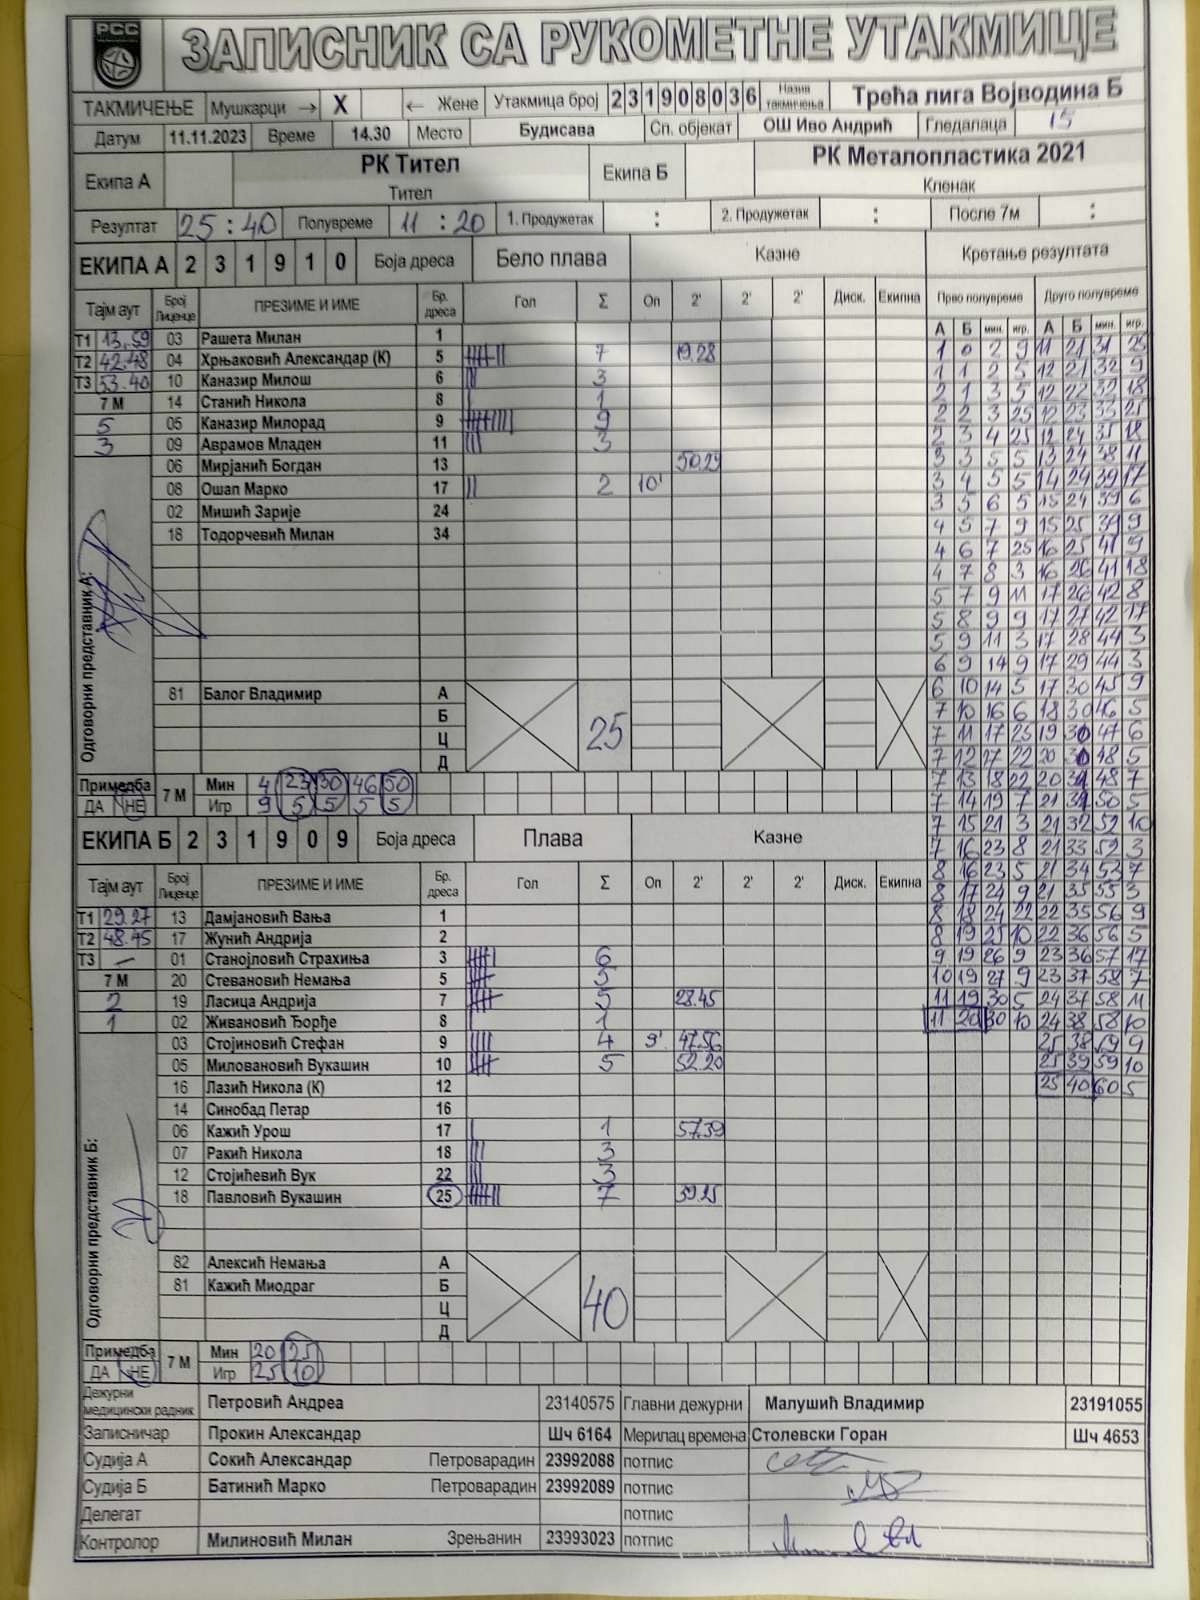 РСС
ЗАПИСНИК СА РУКОМЕТНЕ УТАКМИЦЕ
ТАКМИЧЕЊЕ Мушкарци → X ← Жене Утакмица број 231908036 Назив такмичења Трећа лига Војводина Б
Датум 11.11.2023 Време 14.30 Место Будисава Сп. објекат ОШ Иво Андрић Гледалаца 15
Екипа А РК Тител Тител Екипа Б РК Металопластика 2021 Кленак
Резултат 25 : 40 Полувреме 11 : 20 1. Продужетак : 2. Продужетак : После 7м :
ЕКИПА А 2 3 1 9 1 0 Боја дреса Бело плава Казне Кретање резултата
Тајм аут Број Лиценце ПРЕЗИМЕ И ИМЕ Бр. дреса Гол Σ Оп 2' 2' 2' Диск. Екипна Прво полувреме Друго полувреме
А Б мин. игр. А Б мин. игр.
Т1 13,59 03 Рашета Милан 1
Т2 42.48 04 Хрњаковић Александар (К) 5 7 19.28
Т3 53.40 10 Каназир Милош 6 3
7 М 14 Станић Никола 8 1
5 05 Каназир Милорад 9 9
3 09 Аврамов Младен 11 3
06 Мирјанић Богдан 13 50.29
08 Ошап Марко 17 2 10'
02 Мишић Зарије 24
18 Тодорчевић Милан 34
Одговорни представник А:
81 Балог Владимир А
Б
Ц
Д
25
Примедба ДА НЕ 7 М Мин 4 23 30 46 50
Игр 9 5 5 5 5
1 0 2 9 11 21 31 25
1 1 2 5 12 21 32 9
2 1 3 5 12 22 32 18
2 2 3 25 12 23 33 25
2 3 4 25 12 24 35 18
3 3 5 5 13 24 38 11
3 4 5 5 14 24 39 17
3 5 6 5 15 24 39 6
4 5 7 9 15 25 39 9
4 6 7 25 16 25 41 9
4 7 8 3 16 26 41 18
5 7 9 11 17 26 42 8
5 8 9 9 17 27 42 17
5 9 11 3 17 28 44 3
6 9 14 9 17 29 44 3
6 10 14 5 17 30 45 9
7 10 16 6 18 30 46 5
7 11 17 25 19 30 47 6
7 12 17 22 20 48 5
7 13 18 22 20 31 48 7
7 14 19 7 21 31 50 5
7 15 21 3 21 32 52 10
7 16 23 8 21 33 52 3
8 16 23 5 21 34 53 7
8 17 24 9 21 35 55 3
8 18 24 22 22 35 56 9
8 19 25 10 22 36 56 5
9 19 26 9 23 36 57 17
10 19 27 9 23 37 58 7
11 19 30 5 24 37 58 11
11 20 30 10 24 38 58 10
25 38 59 9
25 39 59 10
25 40 60 5
ЕКИПА Б 2 3 1 9 0 9 Боја дреса Плава Казне
Тајм аут Број Лиценце ПРЕЗИМЕ И ИМЕ Бр. дреса Гол Σ Оп 2' 2' 2' Диск. Екипна
Т1 29.27 13 Дамјановић Вања 1
Т2 48.45 17 Жунић Андрија 2
Т3 – 01 Станојловић Страхиња 3 6
7 М 20 Стевановић Немања 5 5
2 19 Ласица Андрија 7 5 28.45
1 02 Живановић Ђорђе 8 1
03 Стојиновић Стефан 9 4 9' 47.56
05 Миловановић Вукашин 10 5 52.20
16 Лазић Никола (К) 12
14 Синобад Петар 16
06 Кажић Урош 17 1 57.39
07 Ракић Никола 18 3
12 Стојићевић Вук 22 3
18 Павловић Вукашин 25 7 39.25
Одговорни представник Б:
82 Алексић Немања А
81 Кажић Миодраг Б
Ц
Д
40
Примедба ДА НЕ 7 М Мин 20 25
Игр 25 10
Дежурни медицински радник Петровић Андреа 23140575 Главни дежурни Малушић Владимир 23191055
Записничар Прокин Александар Шч 6164 Мерилац времена Столевски Горан Шч 4653
Судија А Сокић Александар Петроварадин 23992088 потпис
Судија Б Батинић Марко Петроварадин 23992089 потпис
Делегат потпис
Контролор Милиновић Милан Зрењанин 23993023 потпис